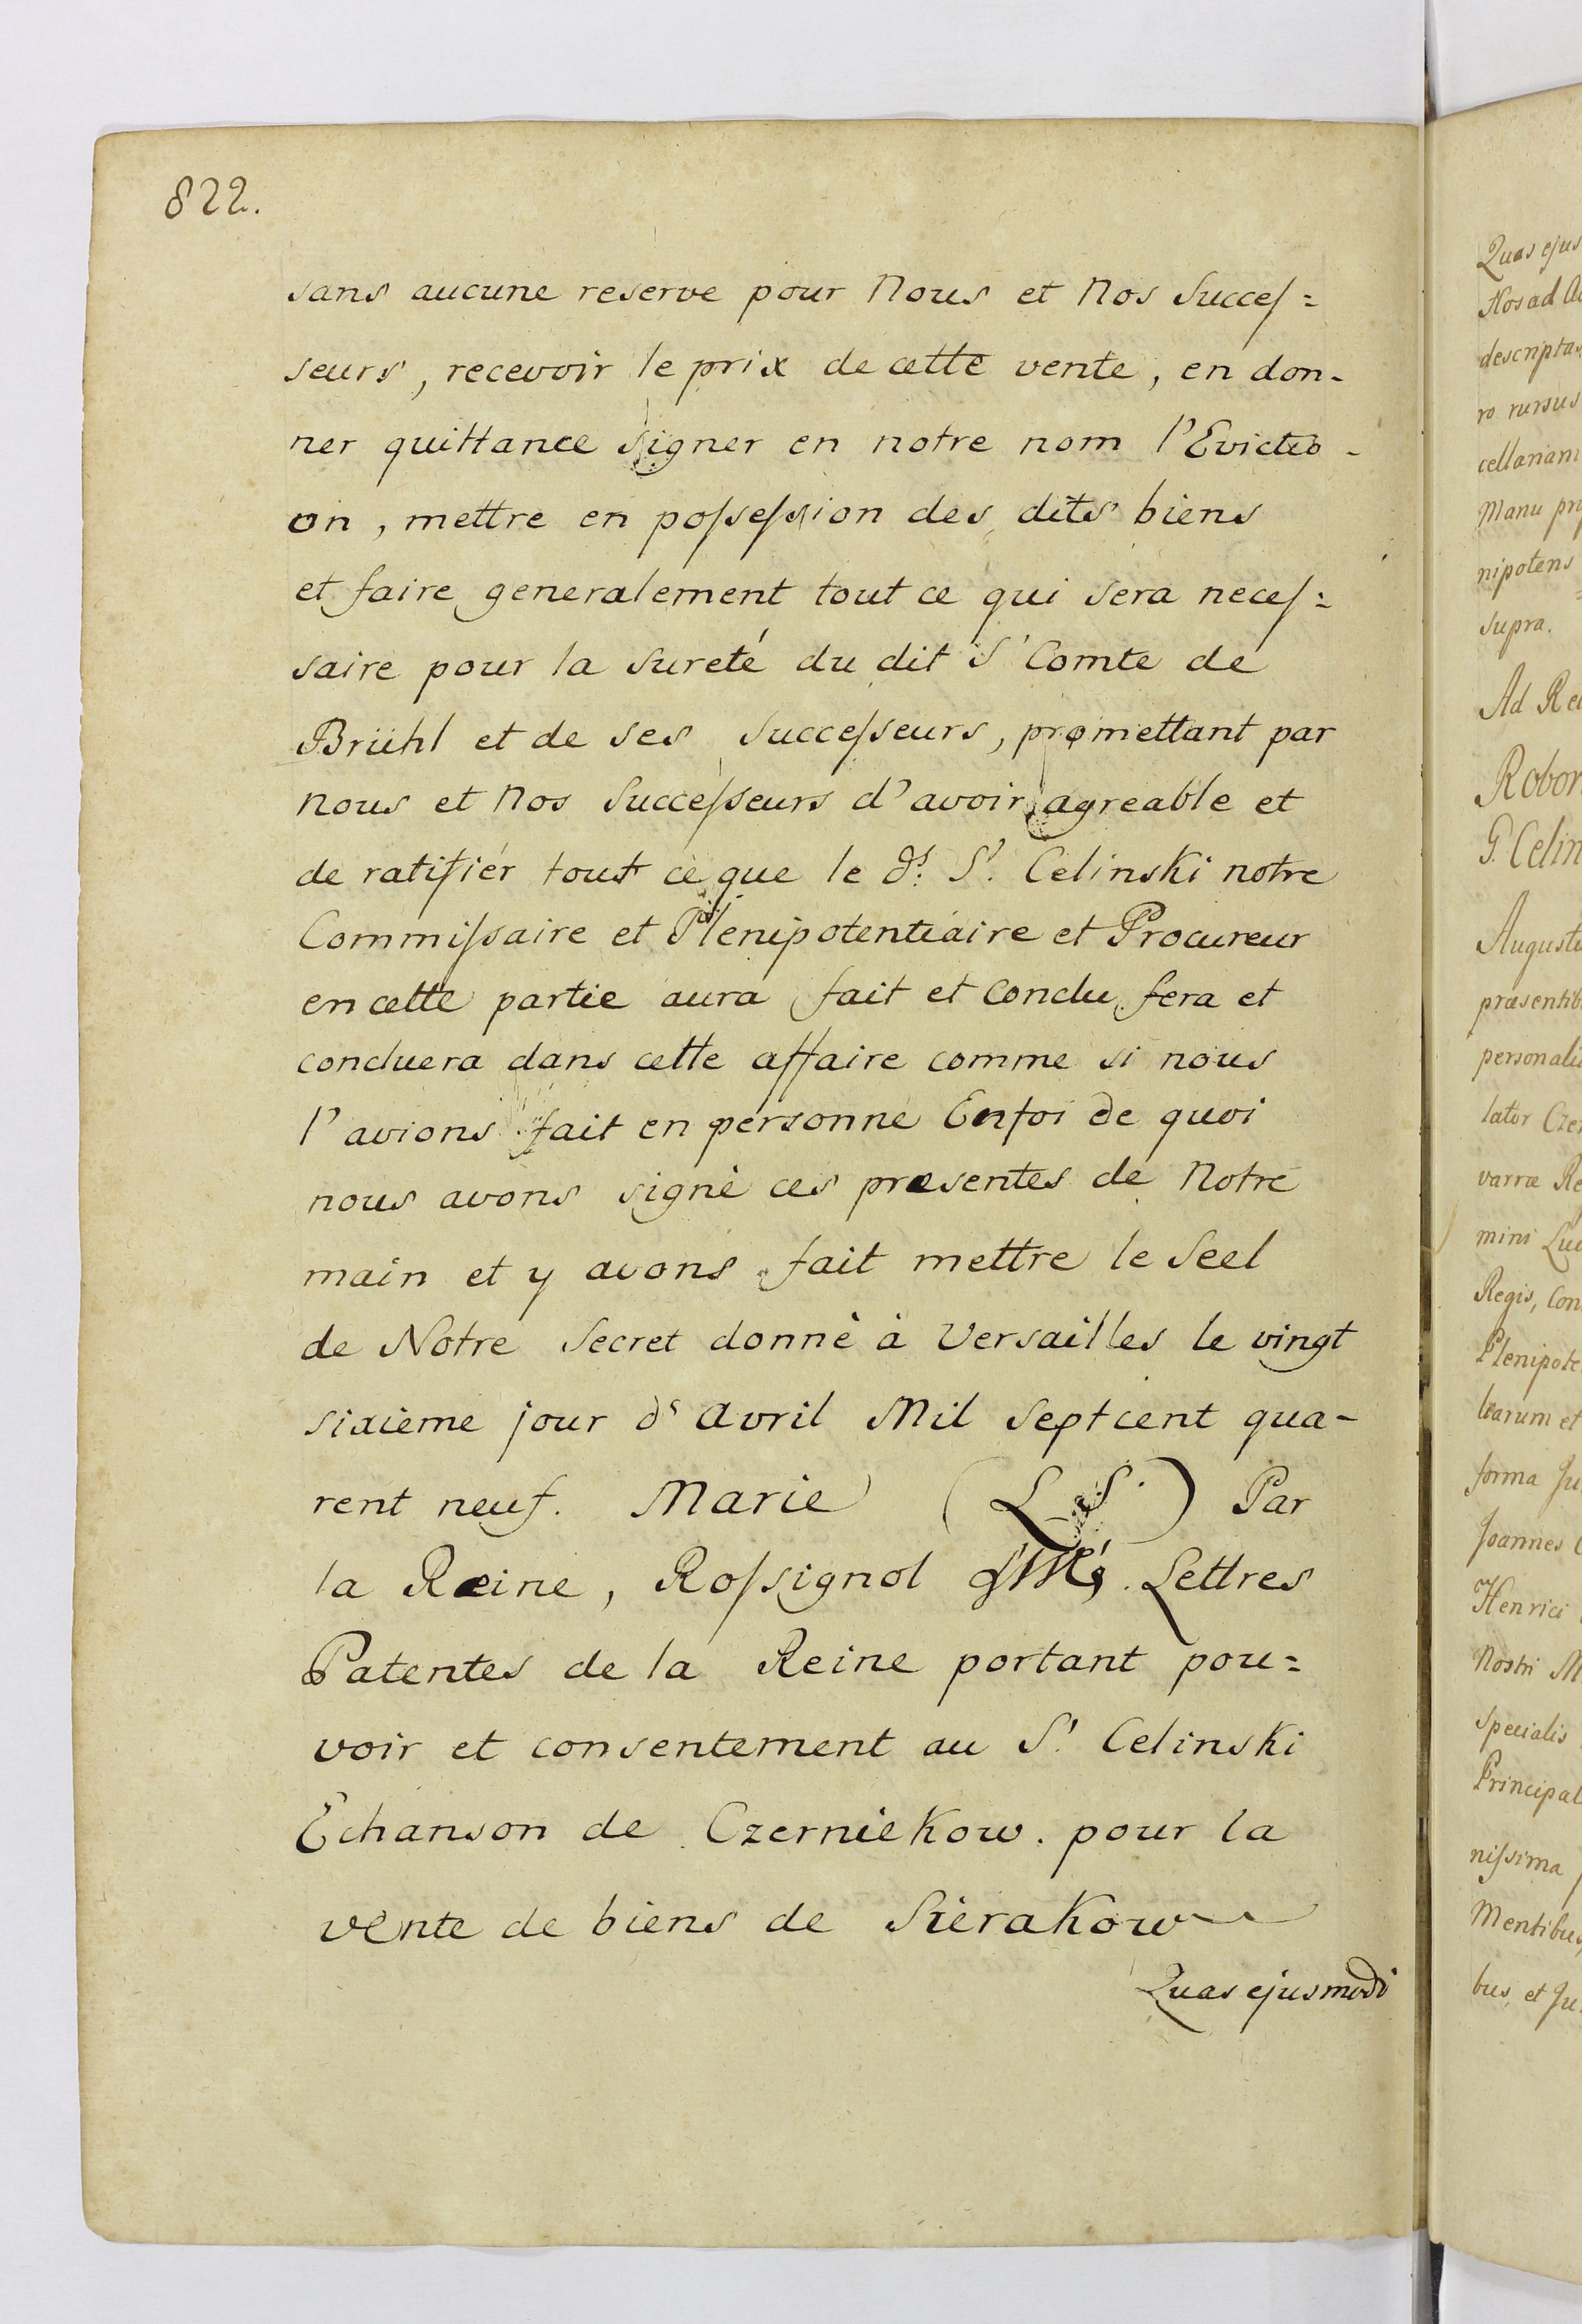 822.
sans aucune reserve pour Nous et Nos Succeſ=
seurs, recevoir le prix de cette vente, en don-
ner quittance signer en notre nom l'Evictio-
on, mettre en poſseſsion des dits biens
et faire generalement tout ce qui sera neceſ=
saire pour la sureté du dit Sʳ Comte de
Brühl et de ses Succeſseurs, promettant par
nous et Nos Succeſseurs d'avoir agreable et
de ratifier tout ce que le dᵗ. Sʳ. Celinski notre
Commiſsaire et Plenipotentiaire et Procureur
en cette partie aura fait et conclu, fera et
concluera dans cette affaire comme si nous
l'avions fait en personne Enfoi de quoi
nous avons signè ces præsentes de Notre
main et y avons fait mettre le Seel
de Notre Secret donnè à Versailles le vingt
sixieme jour d' Avril Mil Septcent qua-
rent neuf. Marie (L. S.) Par
la Reine, Roſsignol Lettres
Patentes de la Reine portant pou=
voir et consentement au Sʳ. Celinski
Echanson de Czerniekow. pour la
vente de biens de Sierakow
Quas ejusmodi
Quas ejus
Nos ad
descriptas
ro rursus
cellariam
Manu
nipotens
supra.
Ad
Robor
Celin
August
præsentib
personali
lator
varræ
mini
Regis, Con
Plenipote
et
forma
Joannes
Henrici
Nostri
specialis
Principal
niſsima
Mentibus
bus, et